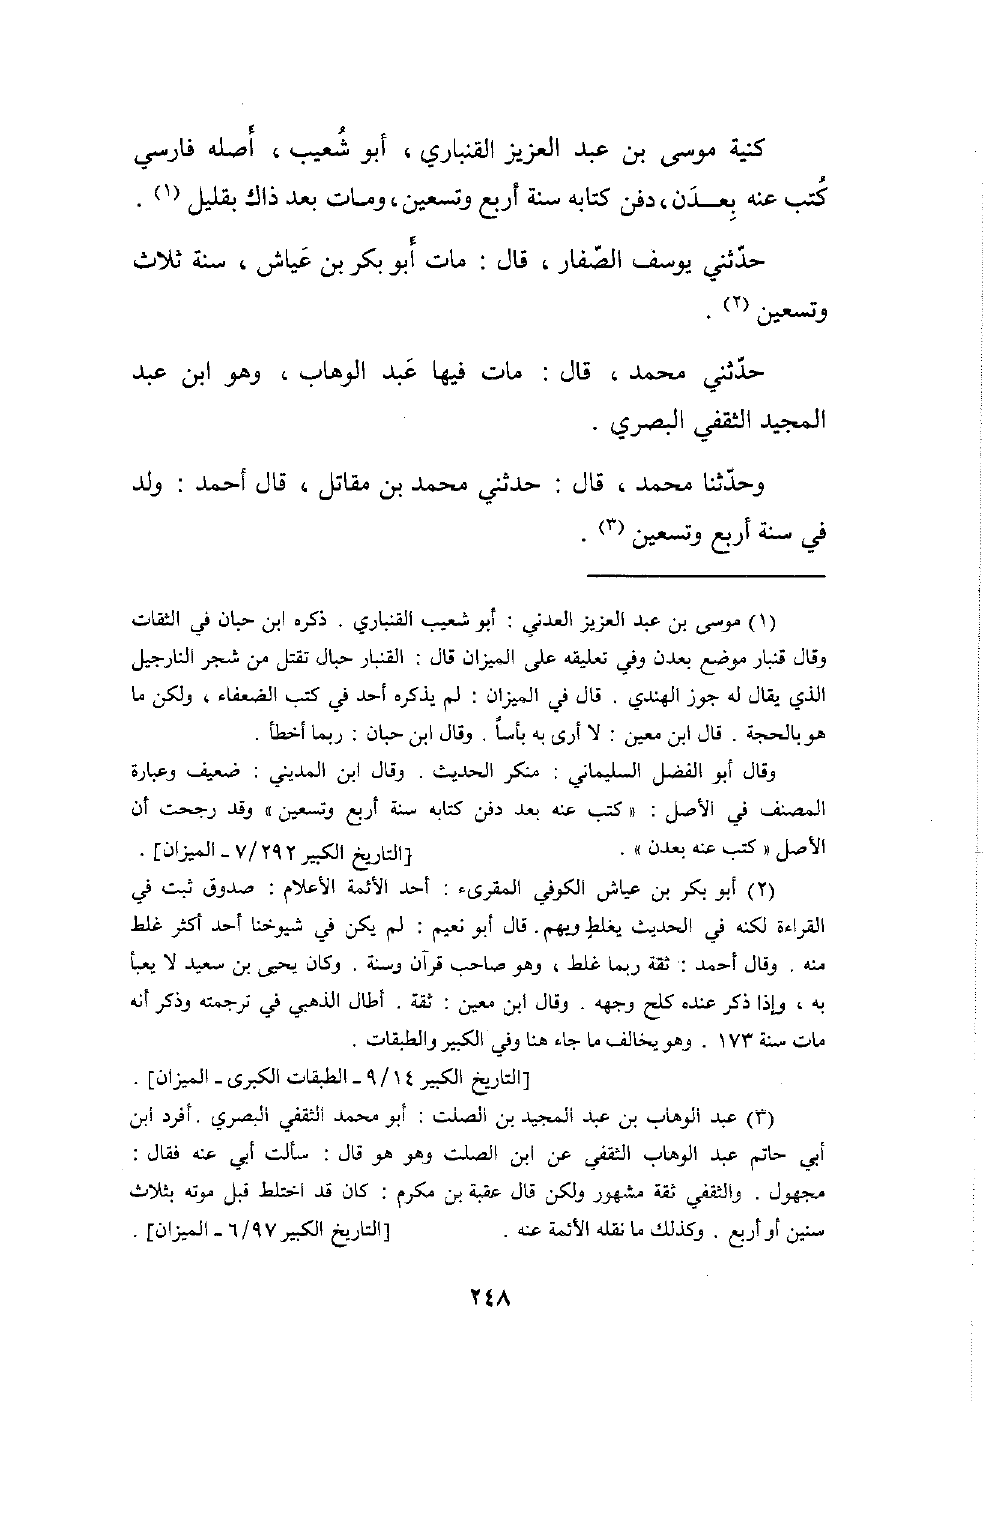 كنية موسى بن عبد العزيز القنباري ، أبو شُعيب ، أَصله فارسي
كُتب عنه بِعـدَن ، دفن كتابه سنة أربع وتسعين ، ومات بعد ذاك بقليل (١) .
حدّثني يوسف الصّفار ، قال : مات أَبو بكر بن عَياش ، سنة ثلاث
وتسعين (٢) .
حدّثني محمد ، قال : مات فيها عَبد الوهاب ، وهو ابن عبد
المجيد الثقفي البصري .
وحدّثنا محمد ، قال : حدثني محمد بن مقاتل ، قال أحمد : ولد
في سنة أربع وتسعين (٣) .
(١) موسى بن عبد العزيز العدني : أبو شعيب القنباري . ذكره ابن حبان في الثقات
وقال قنبار موضع بعدن وفي تعليقه على الميزان قال : القنبار حبال تفتل من شجر النارجيل
الذي يقال له جوز الهندي . قال في الميزان : لم يذكره أحد في كتب الضعفاء ، ولكن ما
هو بالحجة . قال ابن معين : لا أرى به بأساً . وقال ابن حبان : ربما أخطأ .
وقال أبو الفضل السليماني : منكر الحديث . وقال ابن المديني : ضعيف وعبارة
المصنف في الأصل : « كتب عنه بعد دفن كتابه سنة أربع وتسعين » وقد رجحت أن
الأصل « كتب عنه بعدن » . [التاريخ الكبير ٧/٢٩٢ - الميزان] .
(٢) أبو بكر بن عياش الكوفي المقرىء : أحد الأئمة الأعلام : صدوق ثبت في
القراءة لكنه في الحديث يغلط ويهم . قال أبو نعيم : لم يكن في شيوخنا أحد أكثر غلط
منه . وقال أحمد : ثقة ربما غلط ، وهو صاحب قرآن وسنة . وكان يحيى بن سعيد لا يعبأ
به ، وإذا ذكر عنده كلح وجهه . وقال ابن معين : ثقة . أطال الذهبي في ترجمته وذكر أنه
مات سنة ١٧٣ . وهو يخالف ما جاء هنا وفي الكبير والطبقات .
[التاريخ الكبير ٩/١٤ - الطبقات الكبرى - الميزان] .
(٣) عبد الوهاب بن عبد المجيد بن الصلت : أبو محمد الثقفي البصري . أفرد ابن
أبي حاتم عبد الوهاب الثقفي عن ابن الصلت وهو هو قال : سألت أبي عنه فقال :
مجهول . والثقفي ثقة مشهور ولكن قال عقبة بن مكرم : كان قد اختلط قبل موته بثلاث
سنين أو أربع . وكذلك ما نقله الأئمة عنه . [التاريخ الكبير ٦/٩٧ - الميزان] .
٢٤٨